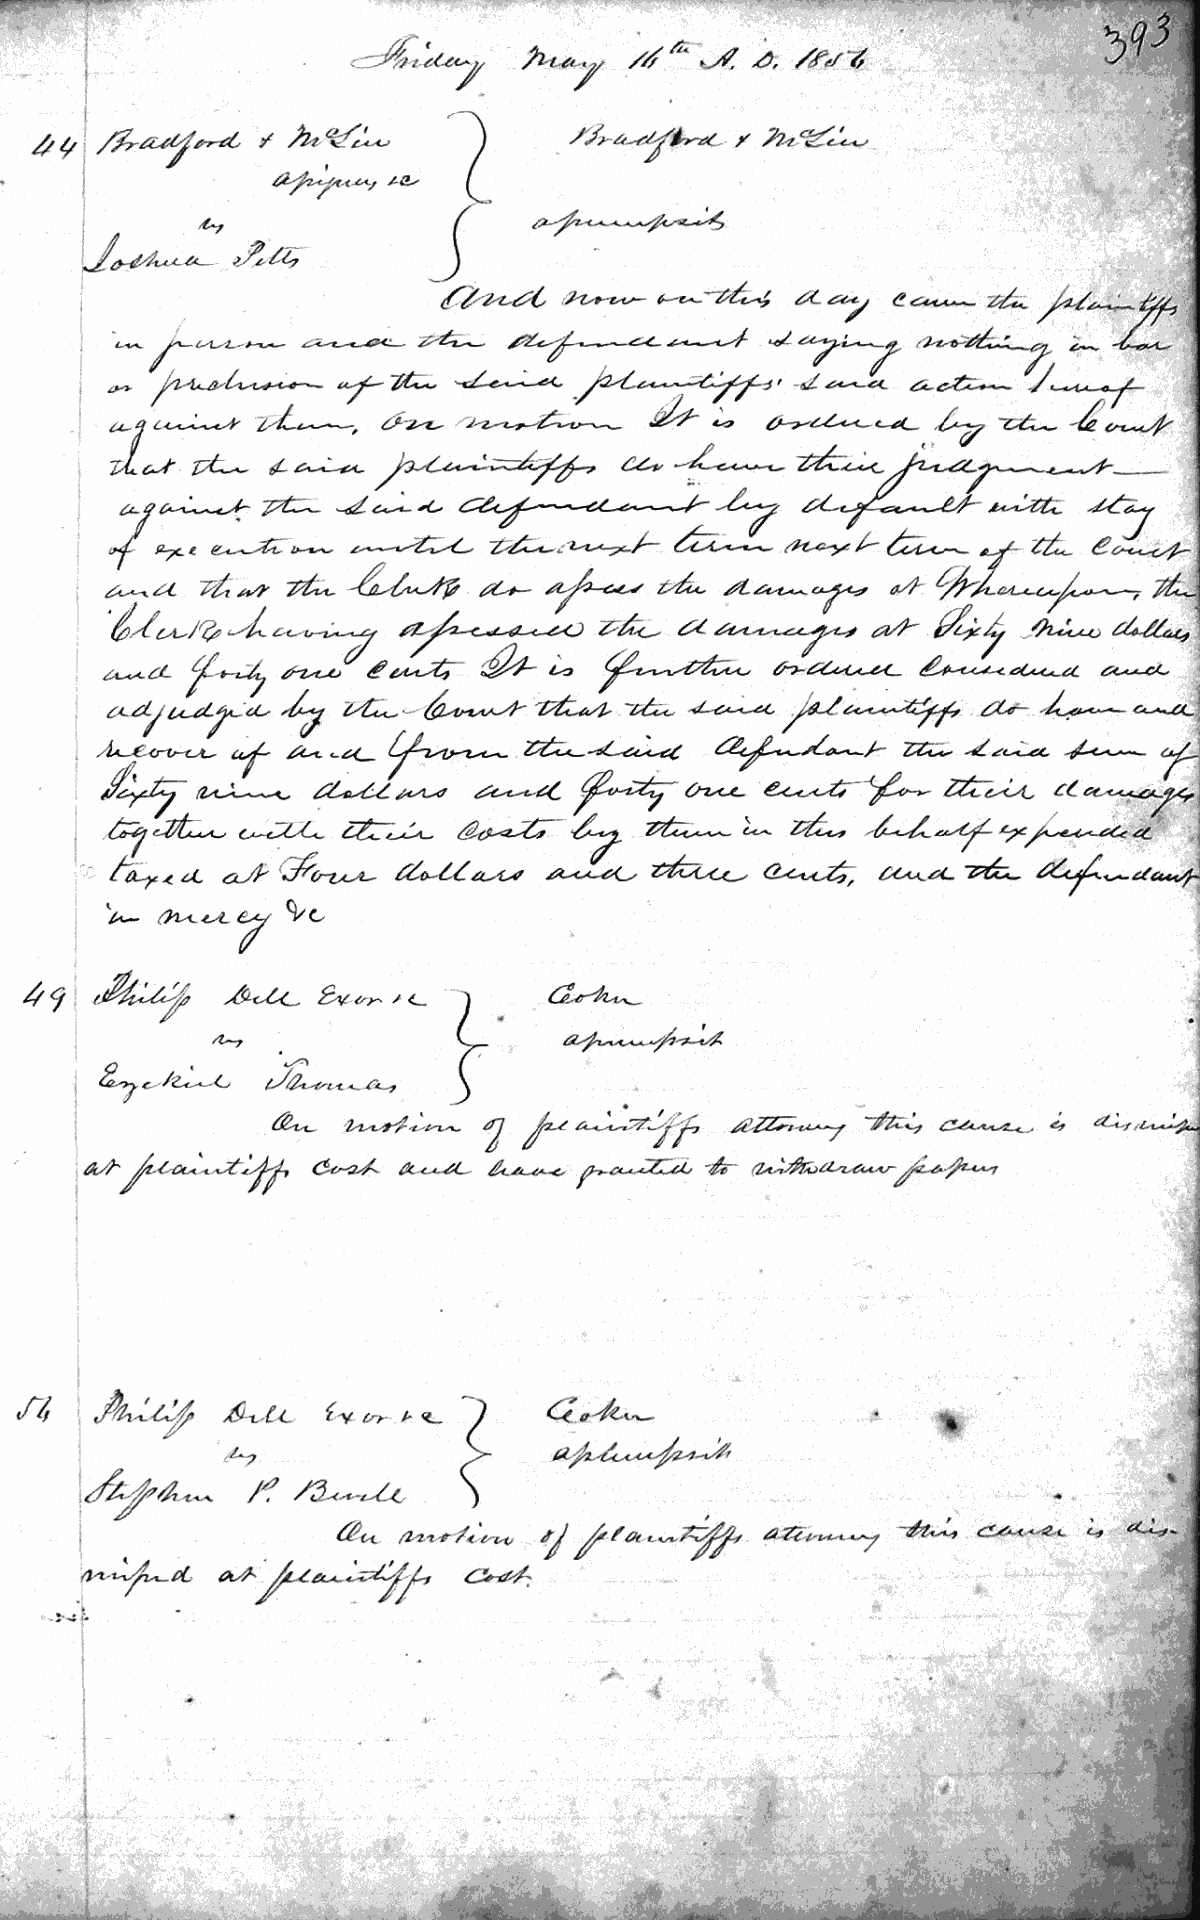 393
Friday May 16th A. D. 1856
44 Bradford & McLin Bradford & McLin
assignees &c
vs assumpsit
Joshua Pitts
And now on this day came the plaintiffs
in person and the defendant saying nothing in bar
or preclusion of the said plaintiffs' said action hereof
against them, on motion It is ordered by the Court
that the said plaintiffs do have their judgment
against the said defendant by default with stay
of execution until the next term next term of the Court
and that the Clerk do assess the damages at Whereupon, the
Clerk having assessed the damages at Sixty Nine dollars
and forty one cents It is further ordered considered and
adjudged by the Court that the said plaintiffs do have and
recover of and from the said defendant the said sum of
Sixty nine dollars and forty one cents for their damages
together with their costs by them in this behalf expended
taxed at Four dollars and three cents, and the defendant
in mercy &c
49 Philip Dell Exor &c Coker
vs assumpsit
Ezekiel Thomas
On motion of plaintiffs attorney this cause is
at plaintiffs cost and leave granted to withdraw papers
56 Philip Dell Exor &c Coker
vs assumpsit
Stephen P.
On motion of plaintiffs attorney this cause is dis-
missed at plaintiffs cost.